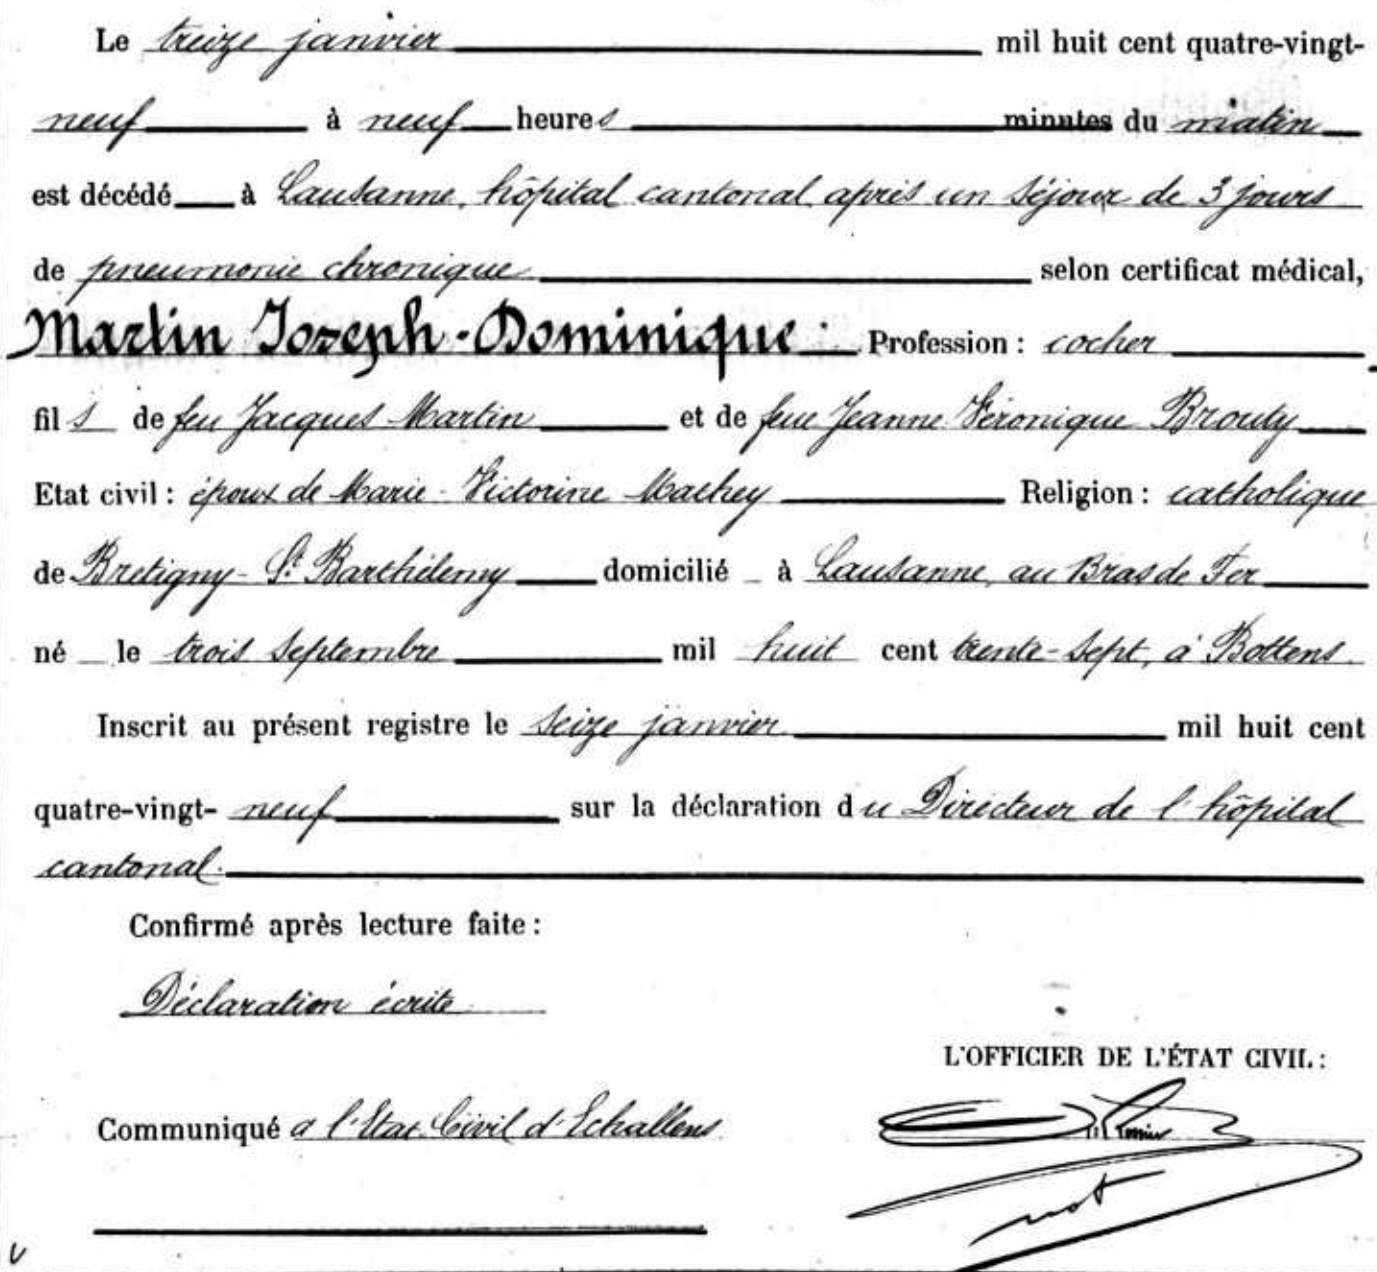 Le treize janvier mil huit cent quatre-vingt-
neuf à neuf heures minutes du matin
est décédé à Lausanne, hôpital cantonal, après un séjour de 3 jours
de pneumonie chronique selon certificat médical,
Martin Joseph-Dominique. Profession : cocher
fils de feu Jacques Martin et de feue Jeanne Véronique Brouty
Etat civil : époux de Marie-Victorine Mathey Religion : catholique
de Bretigny-St Barthélemy domicilié à Lausanne, au Bras de Fer
né le trois septembre mil huit cent trente-sept, à Bottens.
Inscrit au présent registre le seize janvier mil huit cent
quatre-vingt-neuf sur la déclaration du Directeur de l'hôpital
cantonal.
Confirmé après lecture faite :
Déclaration écrite
L'OFFICIER DE L'ÉTAT CIVIL :
Communiqué à l'Etat Civil d'Echallens.
not